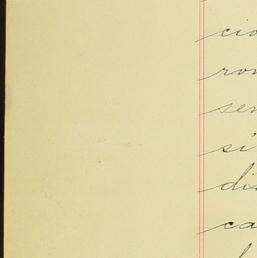 cio
ron
sen
si
dis
ca